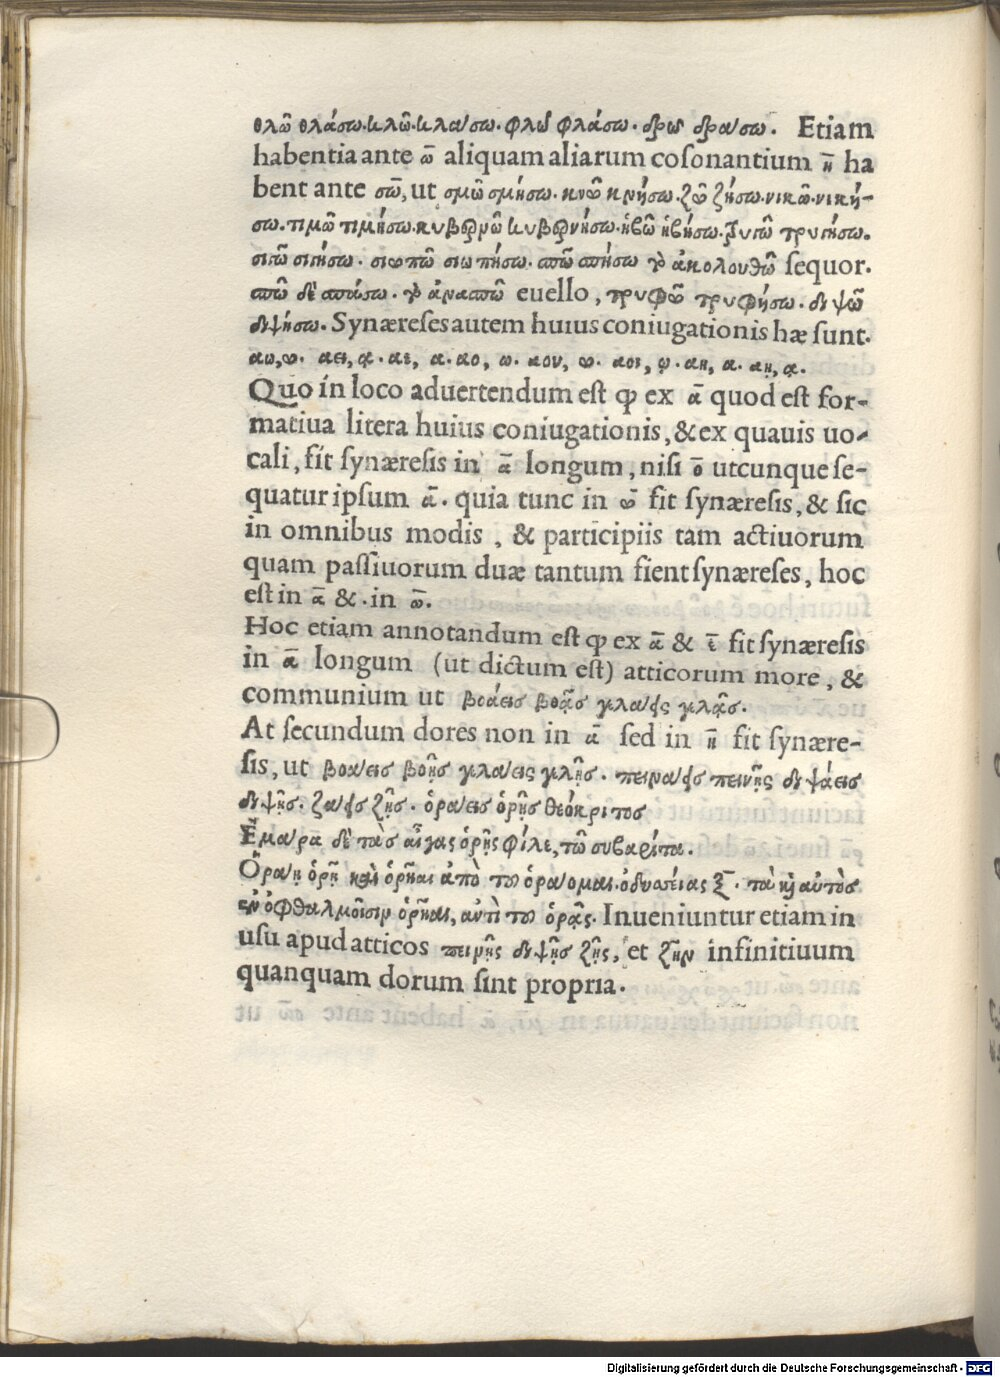 θλῶ θλάσω. κλῶ. κλάσω. φλῶ φλάσω. δρῶ δράσω. Etiam
habentia ante ω̄ aliquam aliarum coſonantium η̄ ha
bent ante σω̄, ut σμῶ σμήσω. κνῶ κνήσω. ζῶ ζήσω. νικῶ. νική-
σω. τιμῶ τιμήσω. κυβερνῶ κυβερνήσω. ἡβῶ ἡβήσω. τρυπῶ τρυπήσω.
σιτῶ σιτήσω. σιωπῶ σιωπήσω. σπῶ σπήσω τὸ ἀκολουθῶ ſequor.
σπῶ δὲ σπάσω. τὸ ἀνασπῶ euello, τρυφῶ τρυφήσω. διψῶ
διψήσω. Synæreſes autem huius coniugationis hæ ſunt.
αω, ω. αει, ᾳ. αε, α. αο, ω. αου, ω. αοι, ῳ. αη, α. αῃ, ᾳ.
Quo in loco aduertendum eſt ꝙ ex ᾱ quod eſt for-
matiua litera huius coniugationis, & ex quauis uo-
cali, fit ſynæreſis in ᾱ longum, niſi ο̄ utcunque ſe-
quatur ipſum ᾱ. quia tunc in ω̄ fit ſynæreſis, & ſic
in omnibus modis, & participiis tam actiuorum
quam paſſiuorum duæ tantum fient ſynæreſes, hoc
eſt in ᾱ &. in ω̄.
Hoc etiam annotandum eſt ꝙ ex ᾱ & ε̄ fit ſynæreſis
in ᾱ longum (ut dictum eſt) atticorum more, &
communium ut βοάεις βοᾷς γελάεις γελᾷς.
At ſecundum dores non in ᾱ ſed in η̄ fit ſynære-
ſis, ut βοάεις βοῇς γελάεις γελῇς. πεινάεις πεινῇς διψάεις
διψῇς. ζάεις ζῇς. ὁράεις ὁρῇς θεόκριτος
δὲ τὰς αἶγας ὁρῇς φίλε, τῶ συβαρίτα.
Ὅραη ὁρῇ καὶ ὁρῆαι ἀπὸ τοῦ ὁράομαι. ὀδυσσείας ξ̄.
ἐν ὀφθαλμοῖσιν ὁρῆαι, ἀντὶ τοῦ ὁρᾷς. Inueniuntur etiam in
uſu apud atticos πεινῇς διψῇς ζῇς, et ζῇν infinitiuum
quanquam dorum ſint propria.
Digitalisierung gefördert durch die Deutsche Forschungsgemeinschaft - DFG